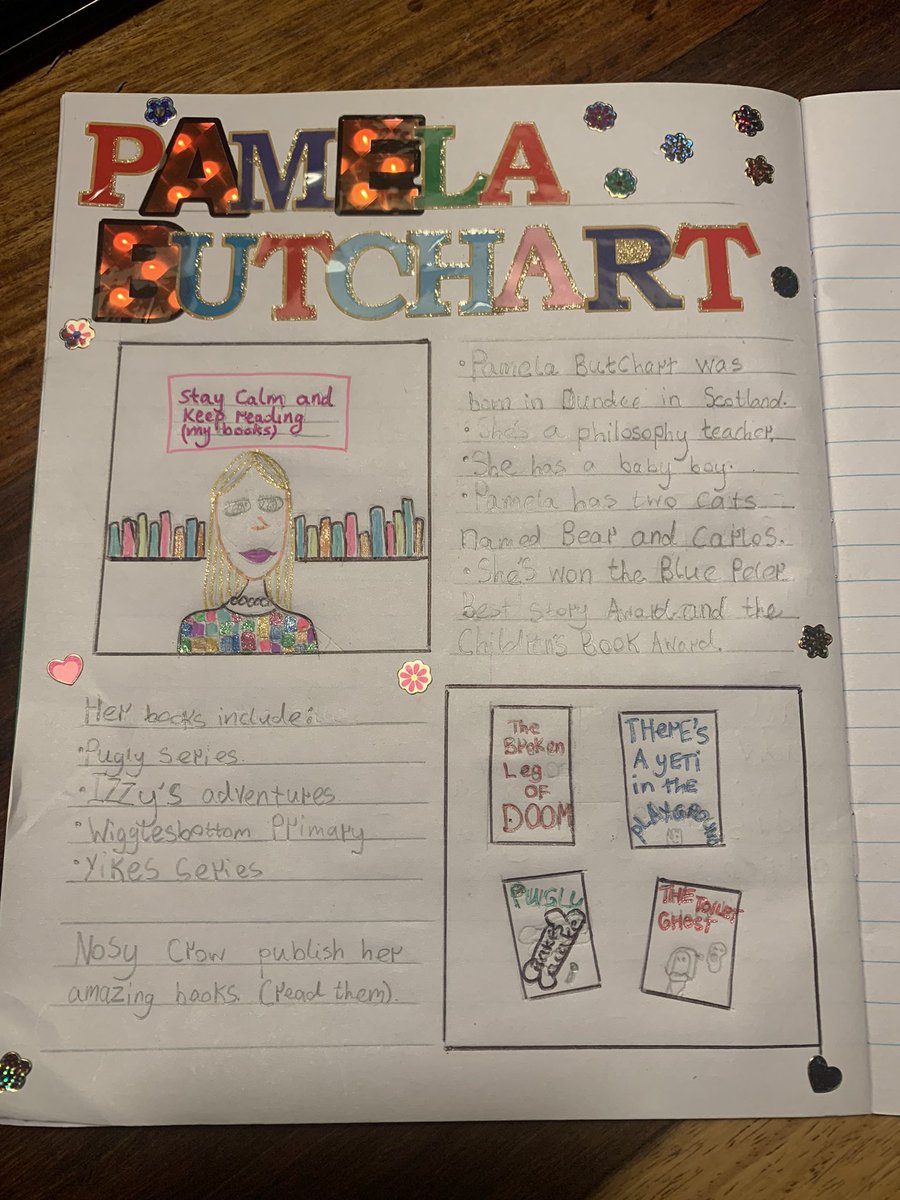 PAMELA
BUTCHART
Stay Calm and
Keep reading
(my books)
• Pamela ButChart was
born in Dundee in Scotland.
• She's a philosophy teacher.
• She has a baby boy.
• Pamela has two cats
named Bear and Carlos.
• She's won the Blue Peter
Best story Award and the
Children's Book Award.
Her books include:
• Pugly series.
• Izzy's adventures
• Wigglesbottom Primary
• Yikes series
Nosy Crow publish her
amazing books. (read them).
The
Broken
Leg OF
DOOM
THERE'S
A YETI
in the
PLAYGROUND
THE TOILET
GHOST